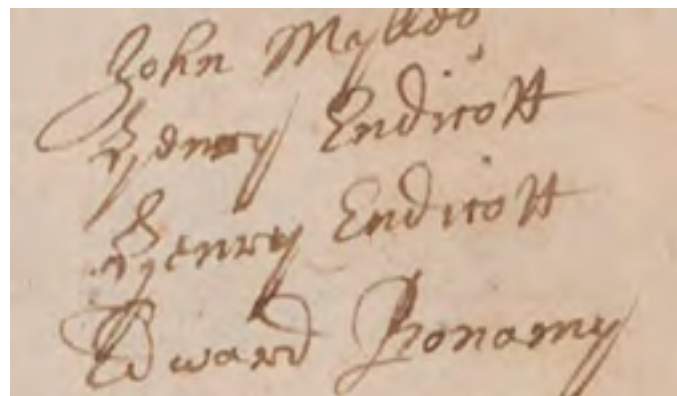 John
Henry Endicott
Henry Endicott
Edward Bonamy